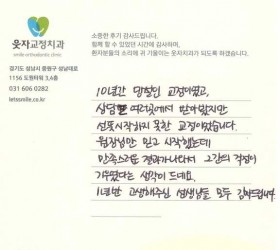 웃자교정치과
smile orthodontic clinic
경기도 성남시 중원구 성남대로
1156 도원타워 3,4층
031 606 0282
letssmile.co.kr
소중한 후기 감사드립니다.
함께 할 수 있었던 시간에 감사하며,
환자분들의 소리에 귀 기울이는 웃자치과가 되도록 하겠습니다.
10년간 망설인 교정이었고,
상담도 여러곳에서 받아봤지만
선뜻시작하지 못한 교정이었습니다.
원장님만 믿고 시작했는데
만족스러운 결과가나타나서 그간의 걱정이
기우였다는 생각이 드네요.
1년반 고생해주신 선생님들 모두 감사드립니다.